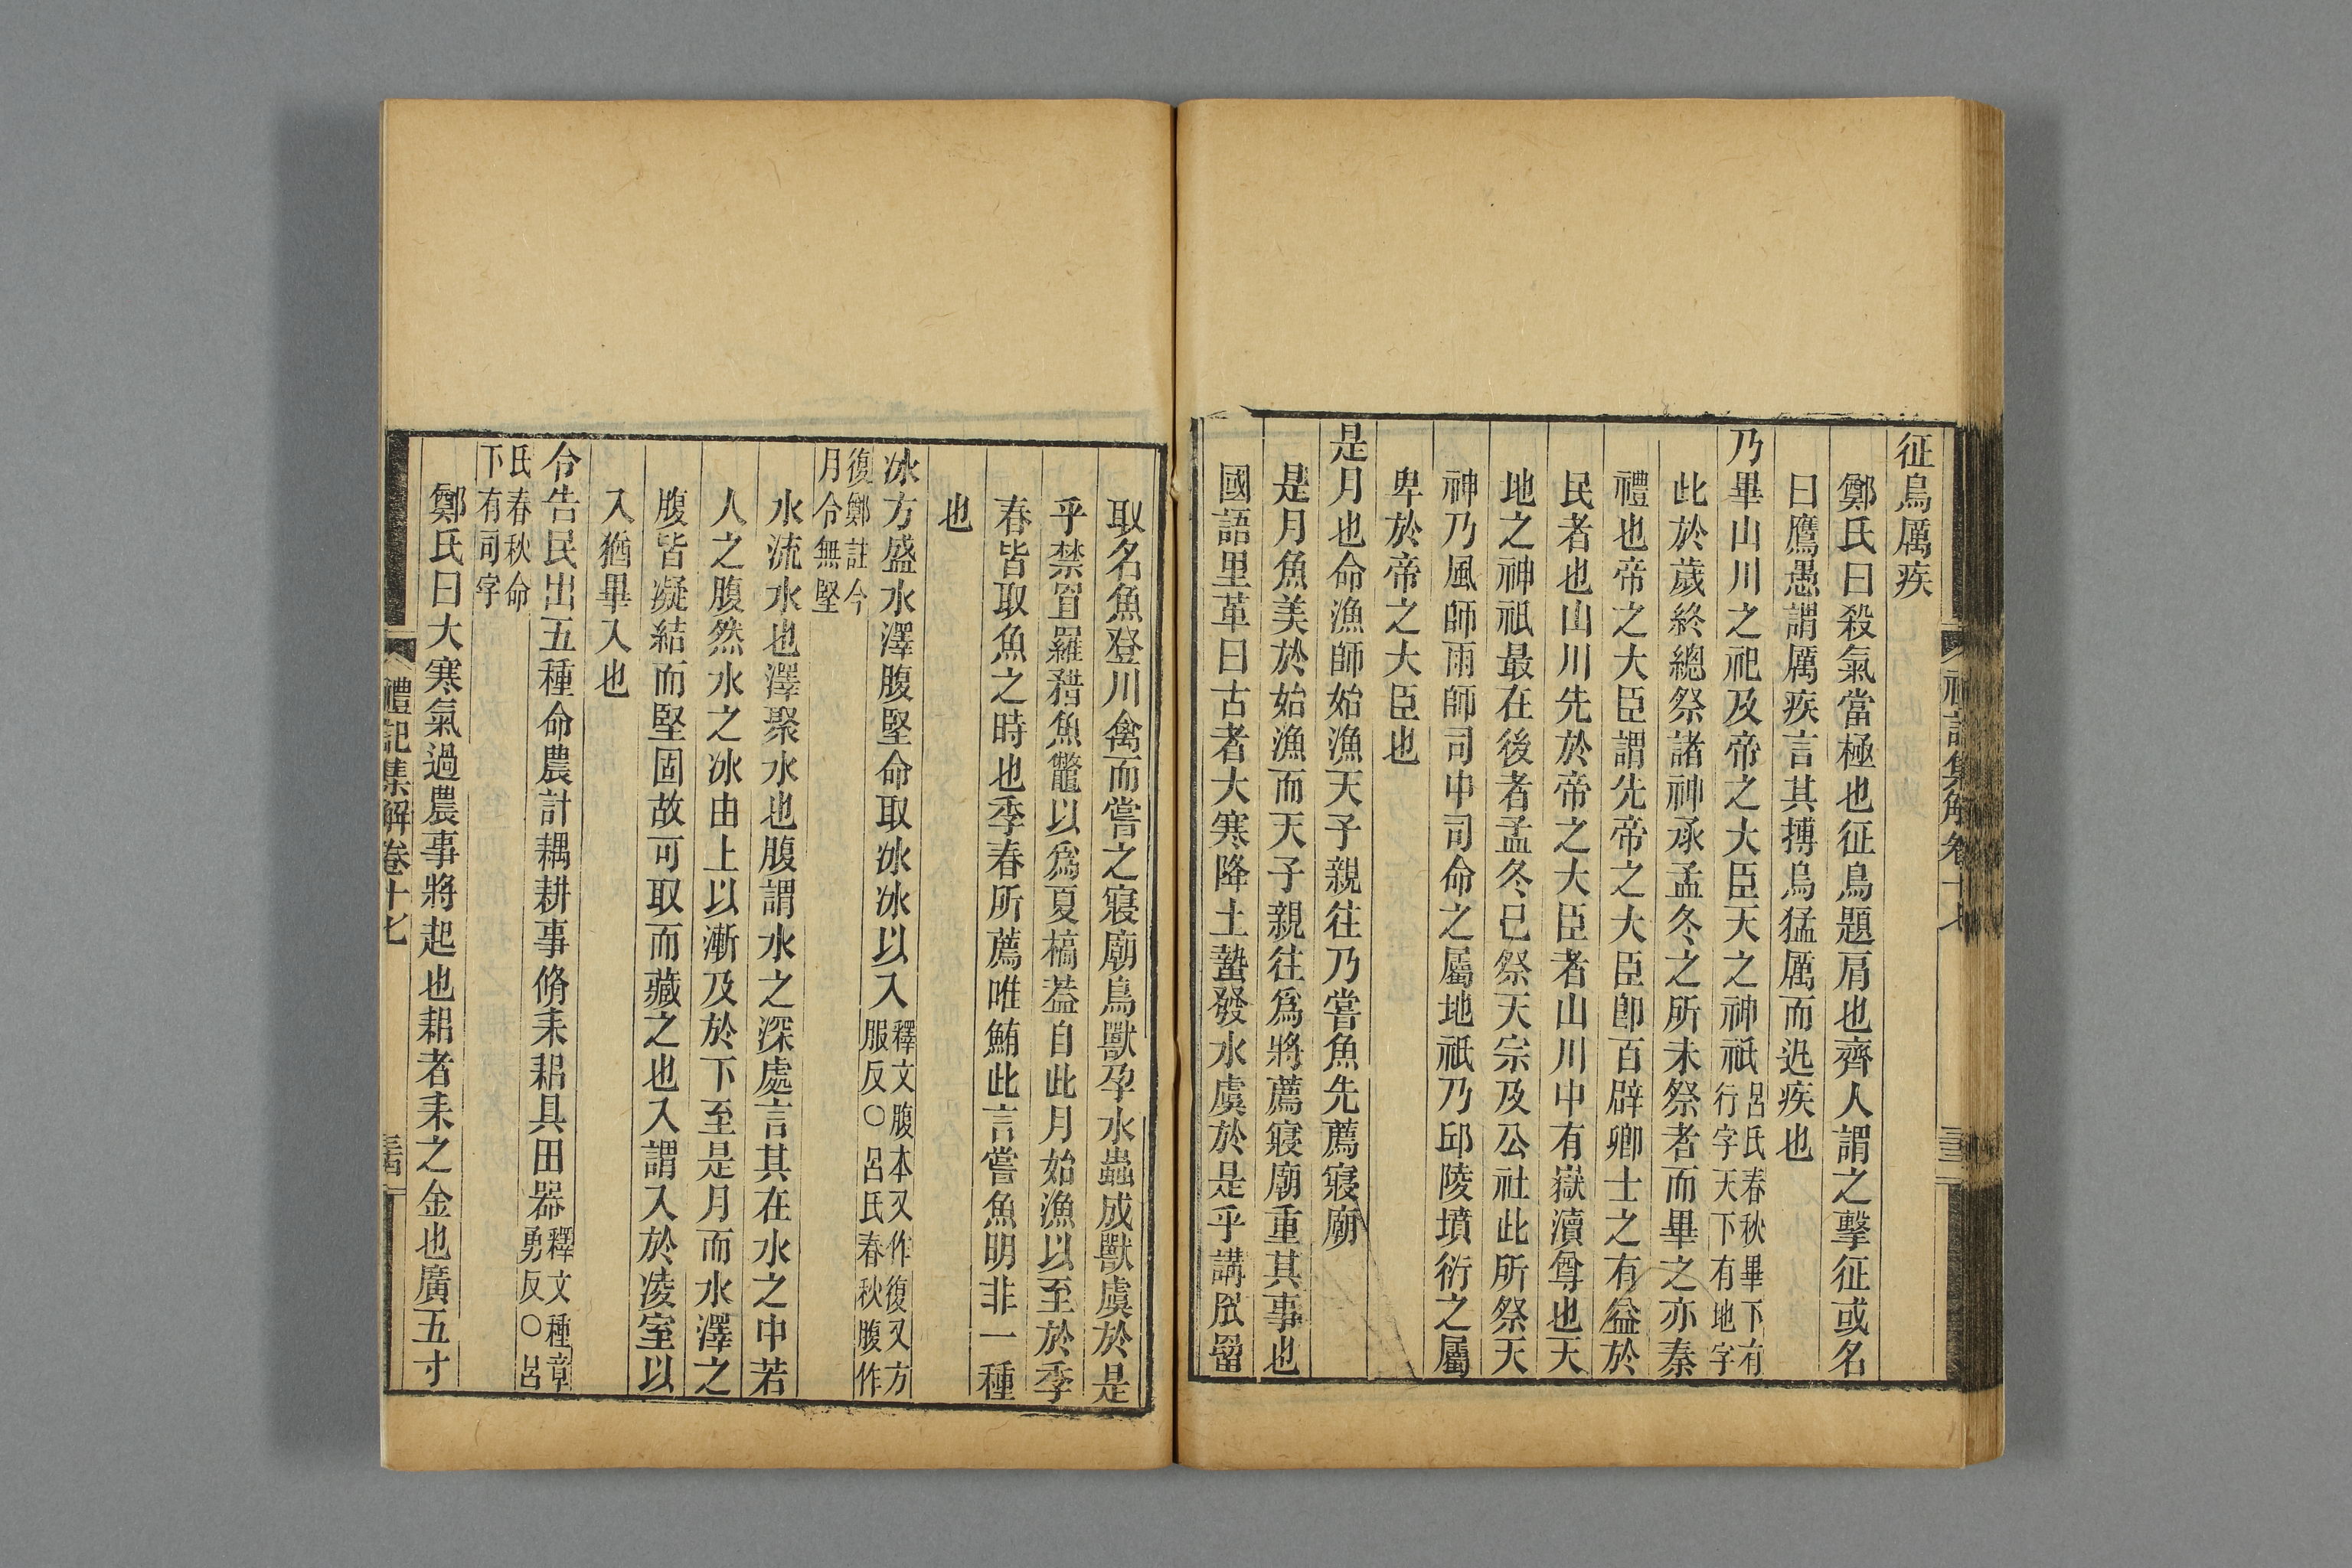 征鳥厲疾
鄭氏曰殺氣當極也征鳥題肩也齊人謂之擊征或名
曰鷹愚謂厲疾言其搏鳥猛厲而迅疾也
乃畢山川之祀及帝之大臣天之神祇呂氏春秋畢下有行字天下有地字
此於歲終總祭諸神承孟冬之所未祭者而畢之亦秦
禮也帝之大臣謂先帝之大臣卽百辟卿士之有益於
民者也山川先於帝之大臣者山川中有嶽瀆尊也天
地之神祇最在後者孟冬已祭天宗及公社此所祭天
神乃風師雨師司中司命之屬地祇乃邱陵墳衍之屬
卑於帝之大臣也
是月也命漁師始漁天子親往乃嘗魚先薦寢廟
是月魚美於始漁而天子親往爲將薦寢廟重其事也
國語里革曰古者大寒降土蟄發水虞於是乎講罛罶
取名魚登川禽而嘗之寢廟鳥獸孕水蟲成獸虞於是
乎禁罝羅矠魚鼈以爲夏槁葢自此月始漁以至於季
春皆取魚之時也季春所薦唯鮪此言嘗魚明非一種
也
冰方盛水澤腹堅命取冰冰以入釋文腹本又作復又方服反○呂氏春秋腹作
復鄭註今月令無堅
水流水也澤聚水也腹謂水之深處言其在水之中若
人之腹然水之冰由上以漸及於下至是月而水澤之
腹皆凝結而堅固故可取而藏之也入謂入於凌室以
入猶畢入也
令告民出五種命農計耦耕事脩耒耜具田器釋文種章勇反○呂
氏春秋命下有司字
鄭氏曰大寒氣過農事將起也耜者耒之金也廣五寸
禮記集解卷十七